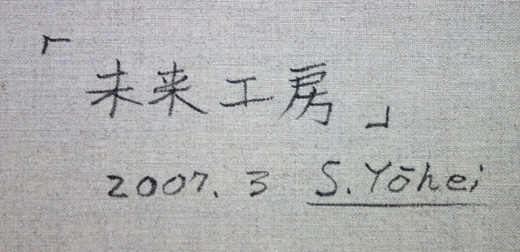 「未来工房」
2007.3 S.Yōhei